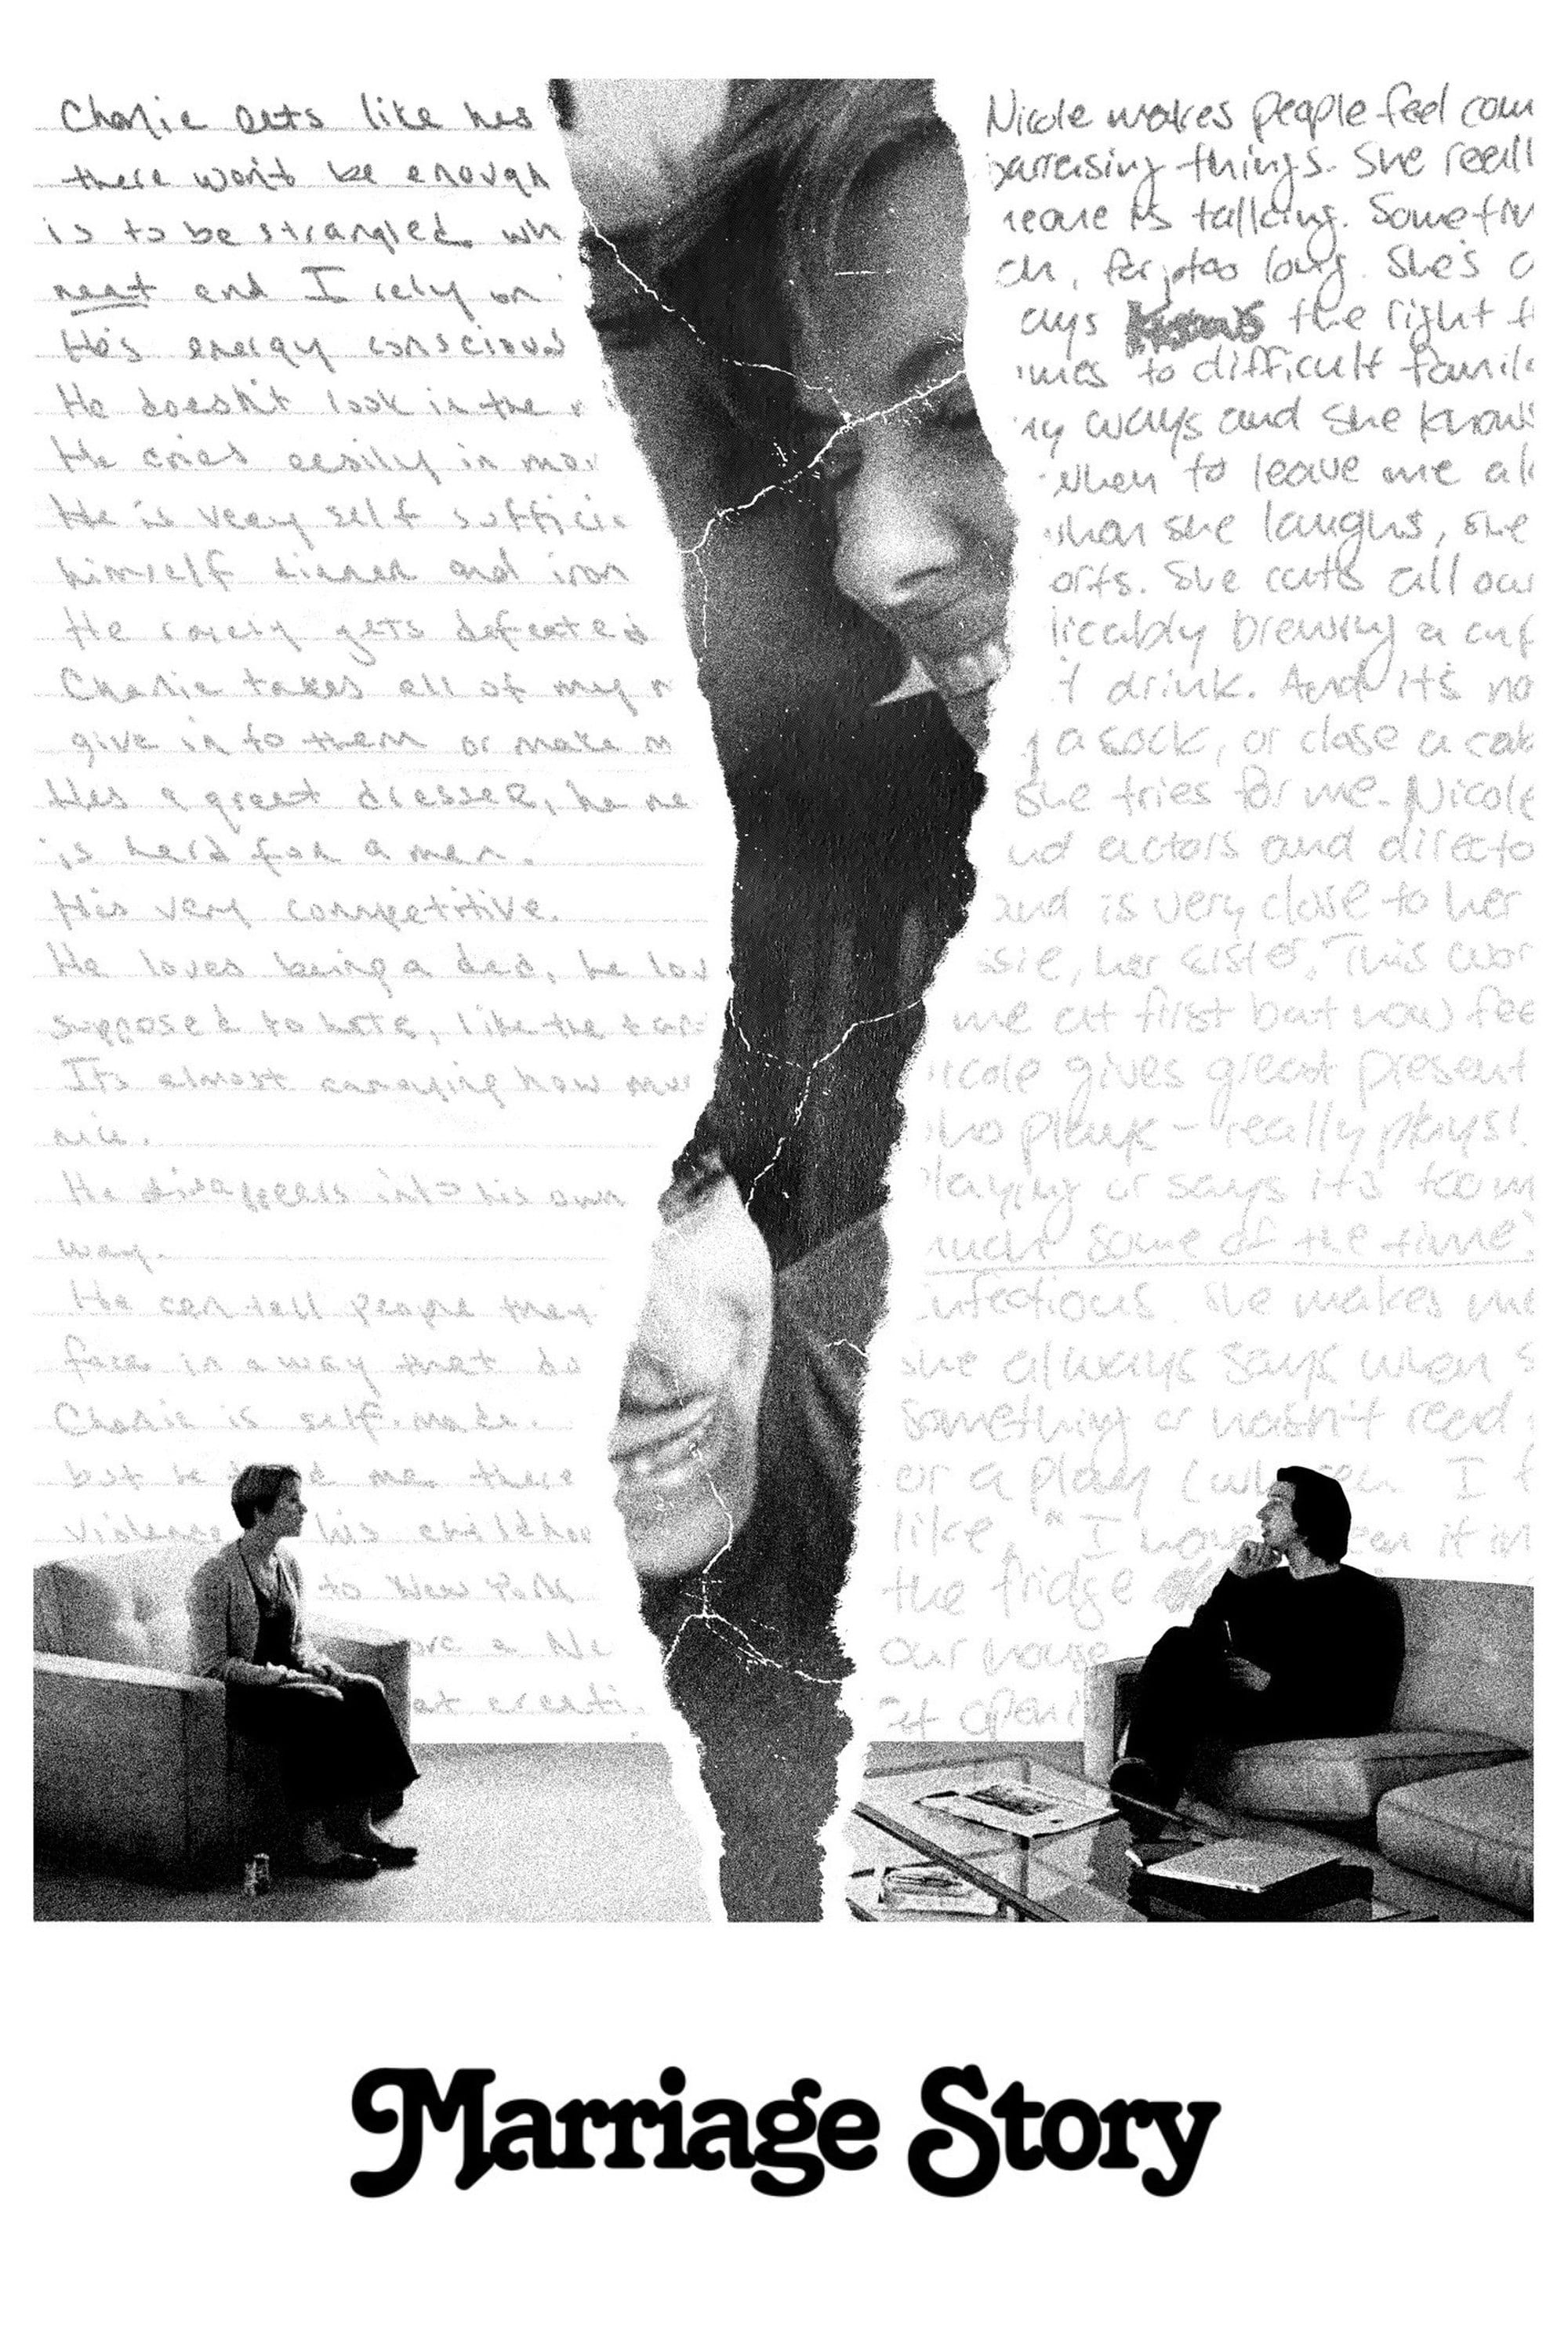 Charlie eats like hes
there won't be enough
is to be strangled wh
neat and I rely on
He's energy conscious
He doesn't look in the
He cries easily in mov
He is very self sufficie
himself dinner and iron
He rarely gets defeated
Charlie takes all of my
give in to them or make m
Hes a great dresser, he ne
is hard for a man.
He's very competitive.
He loves being a dad, he lov
supposed to hate, like the tan
It's almost annoying how mu
nice.
He disappears into his own
way.
He can tell people they
face in a way that do
Charlie is self-made.
but he me there
violence his childhoo
to New York
a Ne
at creati
Nicole makes people feel com
barrasing things. She reall
meone is talking. Sometim
ch, for too long. She's a
ays knows the right th
imes to difficult family
my ways and she knows
when to leave me al
when she laughs, she
orts. She cuts all our
licably brewing a cup
t drink. And it's no
a sock, or close a cab
she tries for me. Nicole
nd actors and directo
and is very close to her
ssie, her sister. This wor
me at first but now fee
icole gives great present
who plays - really plays!
laying or says it's too m
much some of the time
infectious. She makes me
she always says when s
something or hasn't read
or a play (wh een I f
like, "I en it in
the fridge
our house
It open
Marriage Story